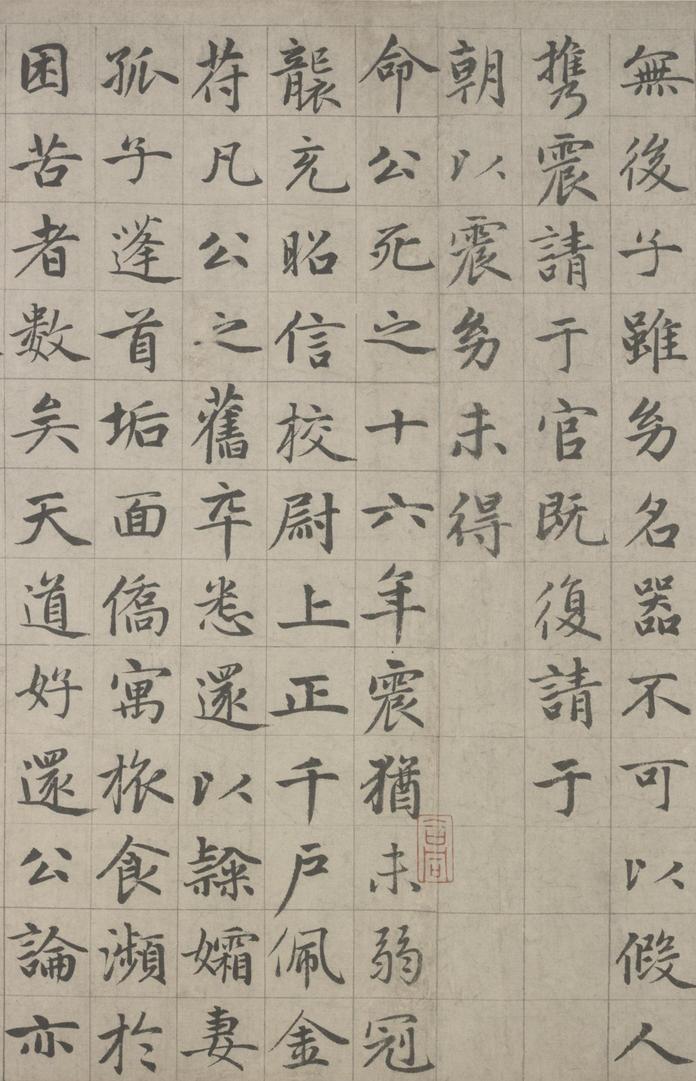 無後子雖㓜名器不可以假人
攜震請于官既復請于
朝以震㓜未得
命公死之十六年震猶未弱冠
襲充昭信校尉上正千户佩金
苻凡公之舊卒悉還以隸孀妻
孤子蓬首垢面僑寓旅食濒於
困苦者数矣天道好還公論亦